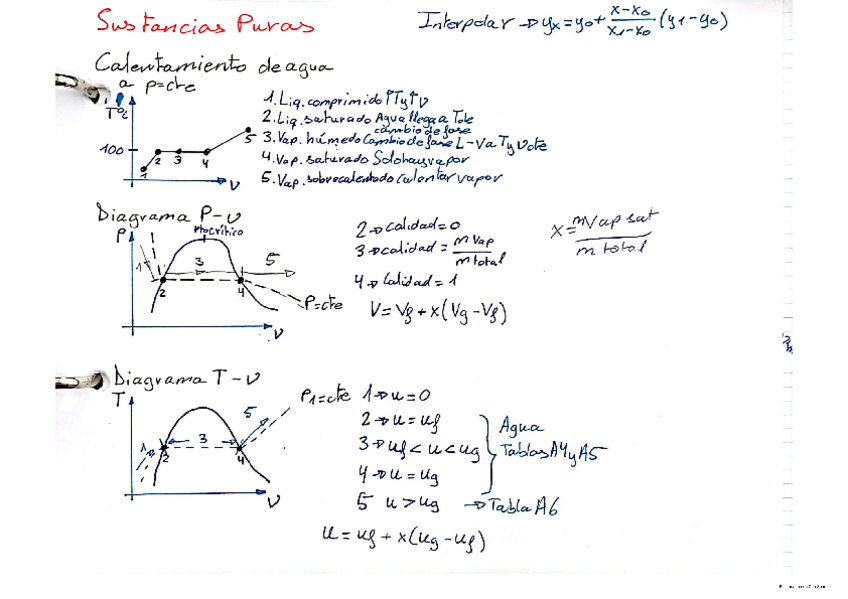 Sustancias Puras
Interpolar → yx = y0 + (x-x0)/(x1-x0) (y1-y0)
Calentamiento de agua
a p=cte
T°C
100
1 2 3 4 5
v
1. Liq. comprimido ↑T y ↑v
2. Liq. saturado Agua llega a Tole
cambio de fase
3. Vap. húmedo Cambio de fase L-V a T y v cte
4. Vap. saturado Solo hay vapor
5. Vap. sobrecalentado Calentar vapor
Diagrama P-v
P
Pto crítico
1 2 3 4 5
P=cte
v
2 → calidad = 0
3 → calidad = m vap / m total
4 → Calidad = 1
V = Vf + x(Vg - Vf)
x = m Vap sat / m total
Diagrama T-v
T
1 2 3 4 5
v
P1=cte
1 → u = 0
2 → u = uf
3 → uf < u < ug
4 → u = ug
Agua
Tablas A4 y A5
5 u > ug → Tabla A6
u = uf + x(ug - uf)